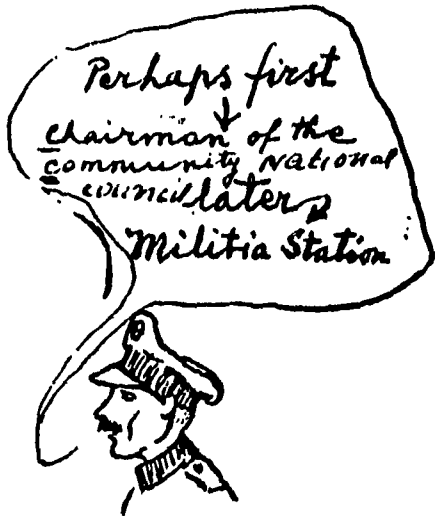 Perhaps first
chairman of the
community National
council later
Militia Station